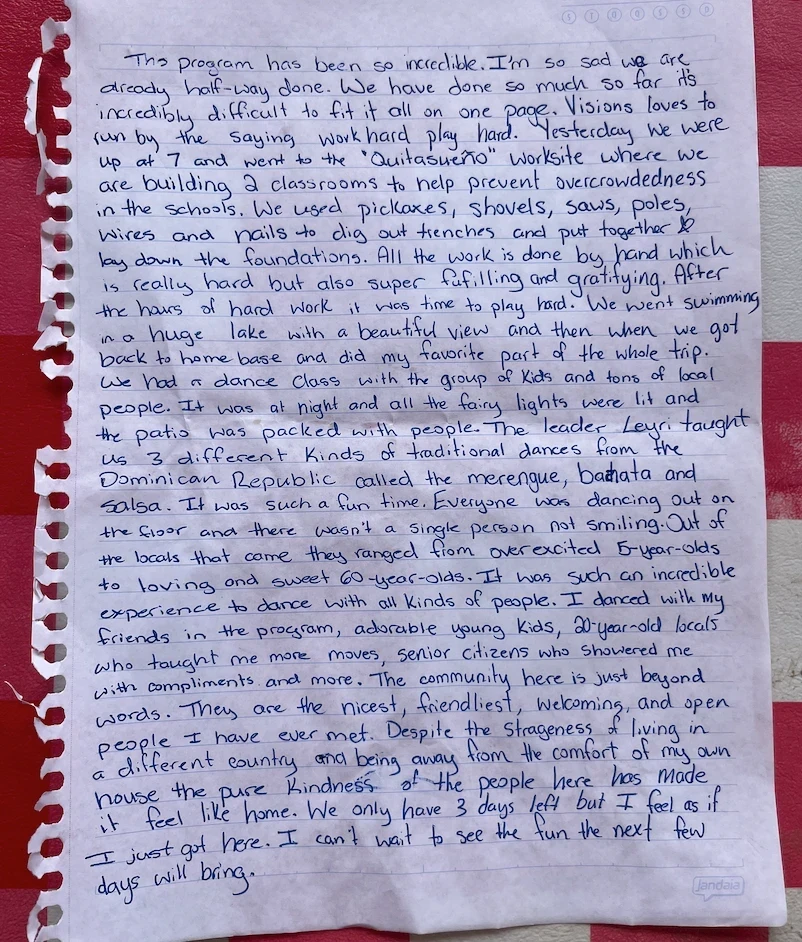 S T Q Q S S D
This program has been so incredible. I'm so sad we are
already half-way done. We have done so much so far it's
incredibly difficult to fit it all on one page. Visions loves to
run by the saying work hard play hard. Yesterday we were
up at 7 and went to the "Quitasueño" worksite where we
are building 2 classrooms to help prevent overcrowdedness
in the schools. We used pickaxes, shovels, saws, poles,
wires and nails to dig out trenches and put together &
lay down the foundations. All the work is done by hand which
is really hard but also super fufilling and gratifying. After
the hours of hard work it was time to play hard. We went swimming
in a huge lake with a beautiful view and then when we got
back to home base and did my favorite part of the whole trip.
We had a dance class with the group of kids and tons of local
people. It was at night and all the fairy lights were lit and
the patio was packed with people. The leader Leyri taught
us 3 different kinds of traditional dances from the
Dominican Republic called the merengue, bachata and
salsa. It was such a fun time. Everyone was dancing out on
the floor and there wasn't a single person not smiling. Out of
the locals that came they ranged from overexcited 5-year-olds
to loving and sweet 60-year-olds. It was such an incredible
experience to dance with all kinds of people. I danced with my
friends in the program, adorable young kids, 20-year-old locals
who taught me more moves, senior citizens who showered me
with compliments and more. The community here is just beyond
words. They are the nicest, friendliest, welcoming, and open
people I have ever met. Despite the strageness of living in
a different country and being away from the comfort of my own
house the pure kindness of the people here has made
it feel like home. We only have 3 days left but I feel as if
I just got here. I can't wait to see the fun the next few
days will bring.
jandaia